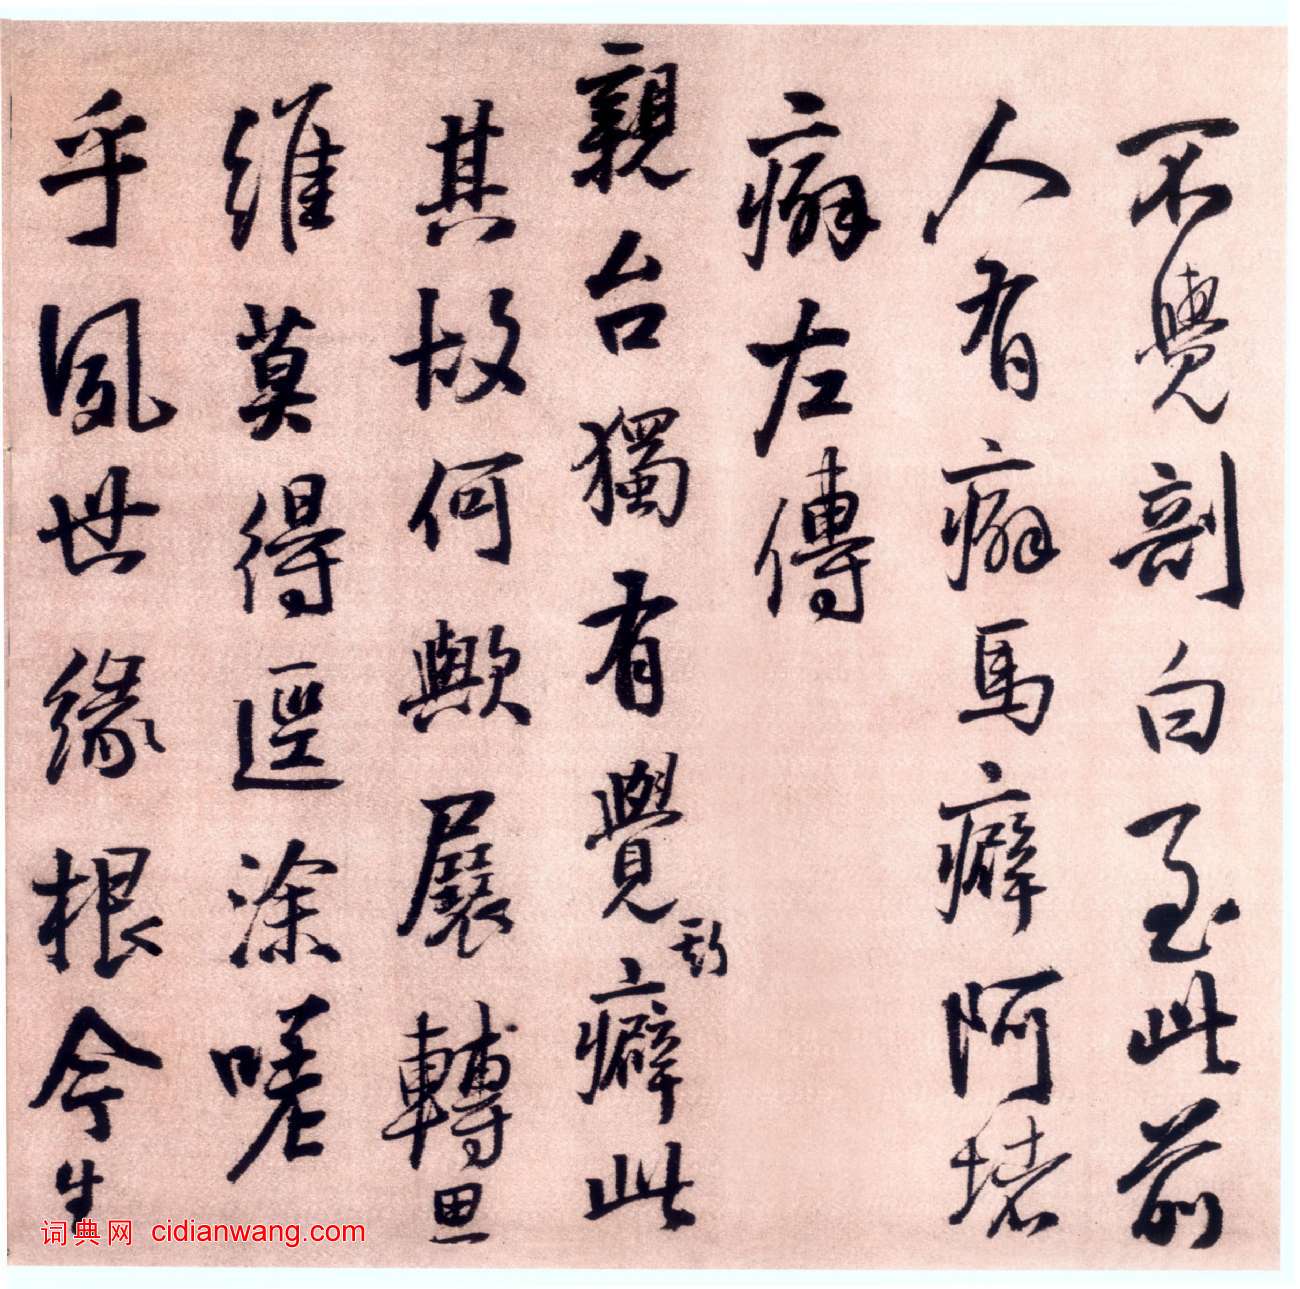 不覺剖白至此前
人有癖馬癖阿堵
癖左傳
親台獨有覺斯癖此
其故何歟展轉思
維莫得逕涂嗟
乎夙世緣根今生
词典网 cidianwang.com